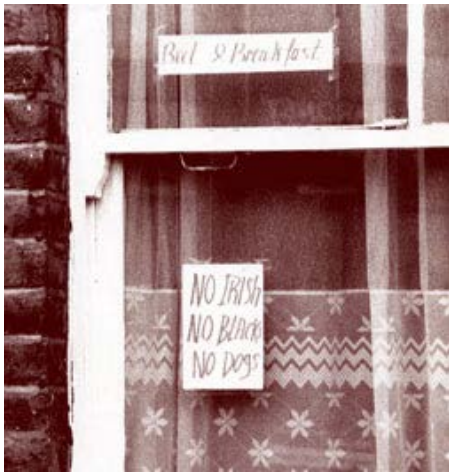 Bed & Breakfast
NO IRISH
NO BLACKS
NO DOgS